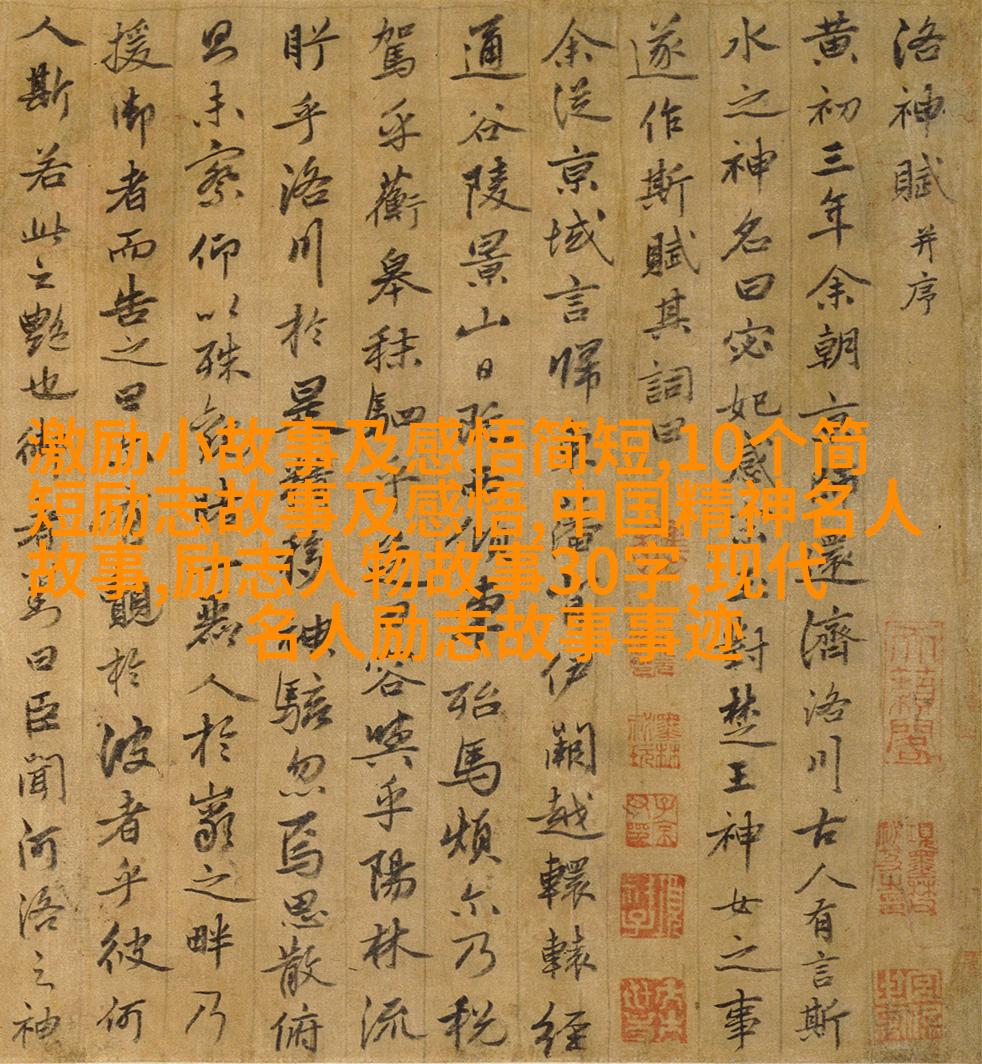 洛神賦并序
黄初三年余朝京師還濟洛川古人有言斯
水之神名曰宓妃感宋玉對楚王神女之事
遂作斯賦其詞曰
余從京域言歸藩伊闕越轘轅經
通谷陵景山日既西傾車殆馬煩尒乃税
駕乎蘅皋秣駟乎芝田容與乎陽林流
眄乎洛川於是精移神駭忽焉思散俯
則未察仰以殊觀覩一麗人於巖之畔乃
援御者而告之曰覿於彼者乎彼何
人斯若此之艷也御者對曰臣聞河洛之神
激励小故事及感悟简短,10个简
短励志故事及感悟,中国精神名人
故事,励志人物故事30字,现代
名人励志故事事迹